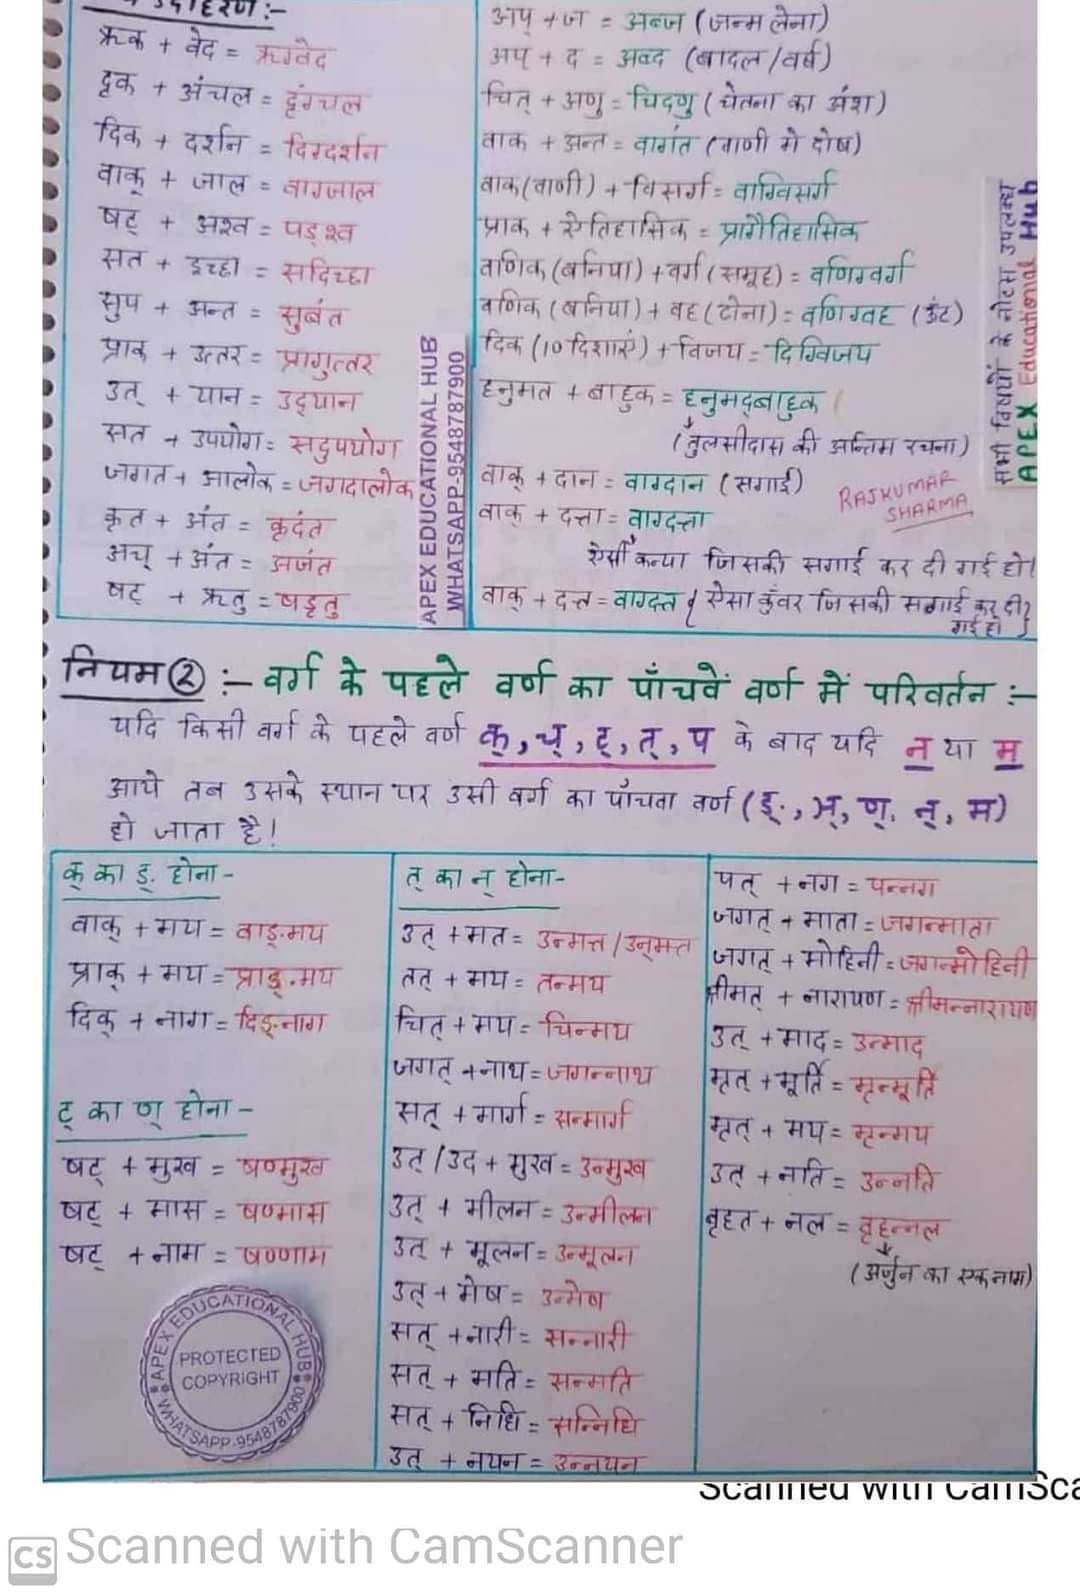 उदाहरण :-
ऋक + वेद = ऋग्वेद
दृक + अंचल = दृंगचल
दिक + दर्शन = दिग्दर्शन
वाक् + जाल = वाग्जाल
षट् + अश्व = षड्श्व
सत + इच्छा = सदिच्छा
सुप + अन्त = सुबंत
प्राक + उत्तर = प्रागुत्तर
उत् + यान = उद्यान
सत + उपयोग = सदुपयोग
जगत + आलोक = जगदालोक
कृत + अंत = कृदंत
अच् + अंत = अजंत
षट् + ऋतु = षड्तु
APEX EDUCATIONAL HUB
WHATSAPP-9548787900
अप् + ज = अब्ज (जन्म लेना)
अप + द = अब्द (बादल/वर्ष)
चित् + अणु = चिदणु (चेतना का अंश)
वाक + अन्त = वागंत (वाणी मे दोष)
वाक(वाणी) + विसर्ग = वाग्विसर्ग
प्राक + ऐतिहासिक = प्रागैतिहासिक
वणिक (बनिया) + वर्ग (समूह) = वणिग्वर्ग
वणिक (बनिया) + वह (ढोना) = वणिग्वह (ऊँट)
दिक (10 दिशाएं) + विजय = दिग्विजय
हनुमत + बाहुक = हनुमद्बाहुक
(तुलसीदास की अन्तिम रचना)
वाक् + दान = वाग्दान (सगाई)
वाक् + दत्ता = वाग्दत्ता
ऐसी कन्या जिसकी सगाई कर दी गई हो।
वाक् + दत्त = वाग्दत्त { ऐसा कुंवर जिसकी सगाई कर दी
गई हो }
RAJKUMAR
SHARMA
सभी विषयों के नोट्स उपलब्ध
APEX Educational Hub
नियम ② :- वर्ग के पहले वर्ण का पाँचवें वर्ण में परिवर्तन :-
यदि किसी वर्ग के पहले वर्ण क्, च्, ट्, त्, प के बाद यदि न या म
आये तब उसके स्थान पर उसी वर्ग का पाँचवा वर्ण (ङ्, ञ्, ण्, न्, म)
हो जाता है!
क् का ङ् होना -
वाक् + मय = वाङ्मय
प्राक् + मय = प्राङ्मय
दिक् + नाग = दिङ्नाग
ट् का ण् होना -
षट् + मुख = षण्मुख
षट् + मास = षण्मास
षट् + नाम = षण्णाम
APEX EDUCATIONAL HUB
PROTECTED
COPYRIGHT
WHATSAPP-9548787900
त् का न् होना -
उत् + मत = उन्मत्त / उन्मत्त
तत् + मय = तन्मय
चित् + मय = चिन्मय
जगत् + नाथ = जगन्नाथ
सत् + मार्ग = सन्मार्ग
उत् / उद + मुख = उन्मुख
उत् + मीलन = उन्मीलन
उत् + मूलन = उन्मूलन
उत् + मेष = उन्मेष
सत् + नारी = सन्नारी
सत् + मति = सन्मति
सत् + निधि = सन्निधि
उत् + नयन = उन्नयन
पत् + नग = पन्नग
जगत् + माता = जगन्माता
जगत् + मोहिनी = जगन्मोहिनी
श्रीमत् + नारायण = श्रीमन्नारायण
उत् + माद = उन्माद
मृत् + मूर्ति = मृन्मूर्ति
मृत् + मय = मृन्मय
उत + नति = उन्नति
वृहत + नल = वृहन्नल
(अर्जुन का एक नाम)
Scanned with CamSca
CS Scanned with CamScanner